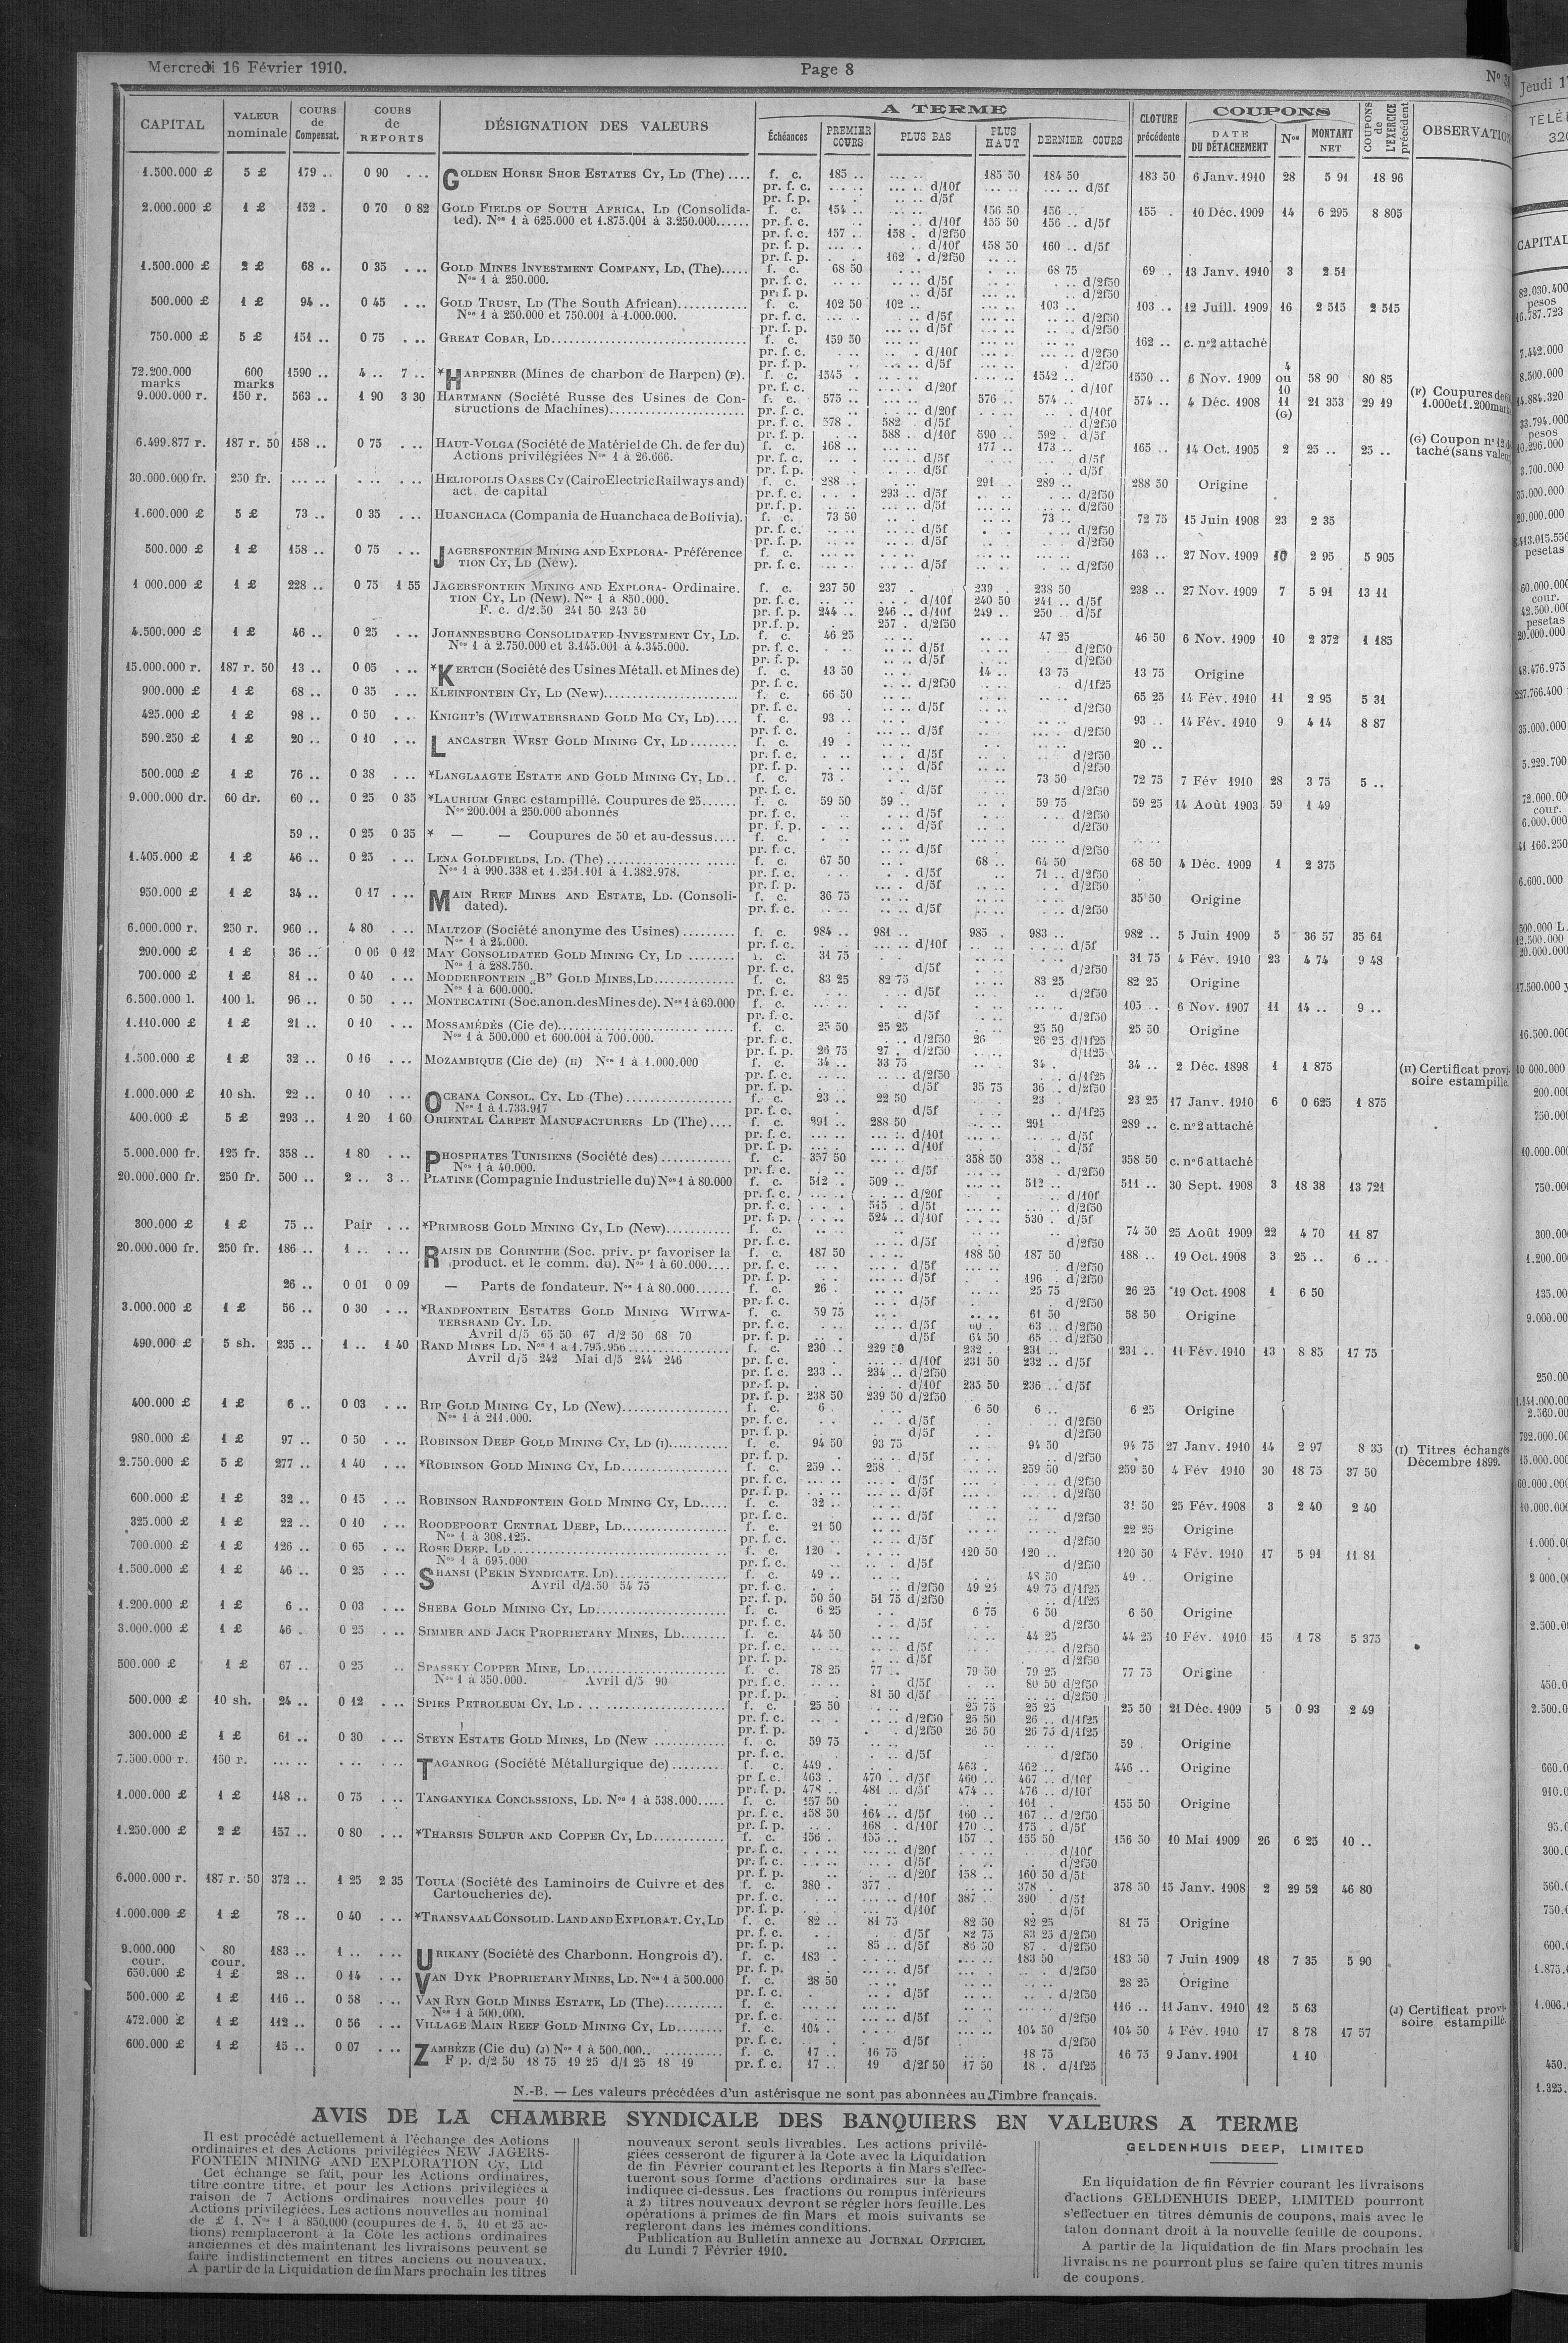 Mercredi 16 Février 1910.
Page 8
CAPITAL
VALEUR nominale
COURS de Compensat.
COURS de REPORTS
DÉSIGNATION DES VALEURS
A TERME
Échéances
PREMIER COURS
PLUS BAS
PLUS HAUT
DERNIER COURS
CLOTURE précédente
COUPONS
DATE DU DÉTACHEMENT
Nos
MONTANT NET
COUPONS de L'EXERCICE précédent
1.500.000 £ 5 £ 179 .. 0 90 . .. GOLDEN HORSE SHOE ESTATES CY, LD (The) .... f. c. 185 .. 185 50 184 50 183 50 6 Janv. 1910 28 5 91 18 96
pr. f. c. d/10f d/5f
pr. f. p. d/5f
2.000.000 £ 1 £ 152 . 0 70 0 82 GOLD FIELDS OF SOUTH AFRICA, LD (Consolida- f. c. 154 .. 156 50 156 .. 155 . 10 Déc. 1909 14 6 295 8 805
ted). Nos 1 à 625.000 et 1.875.001 à 3.250.000...... pr. f. c. d/10f 155 50 156 .. d/5f
pr. f. c. 157 .. 158 . d/2f50
pr. f. p. d/10f 158 50 160 .. d/5f
pr. f. p. 162 . d/2f50
1.500.000 £ 2 £ 68 .. 0 35 . .. GOLD MINES INVESTMENT COMPANY, LD, (The)..... f. c. 68 50 68 75 69 . 13 Janv. 1910 3 2 51
Nos 1 à 250.000. pr. f. c. d/5f d/2f50
pr. f. p. d/5f d/2f50
500.000 £ 1 £ 94 .. 0 45 . .. GOLD TRUST, LD (The South African)............ f. c. 102 50 102 .. 103 .. 103 .. 12 Juill. 1909 16 2 515 2 515
Nos 1 à 250.000 et 750.001 à 1.000.000. pr. f. c. d/5f d/2f50
pr. f. p. d/5f d/2f50
750.000 £ 5 £ 151 .. 0 75 . .. GREAT COBAR, LD................................ f. c. 159 50 162 .. c. n°2 attaché
pr. f. c. d/10f d/2f50
pr. f. p. d/5f d/2f50
72.200.000 marks 600 marks 1590 .. 4 .. 7 .. *HARPENER (Mines de charbon de Harpen) (F). f. c. 1545 . 1542 .. 1550 .. 6 Nov. 1909 4 ou 10 58 90 80 85
pr. f. c. d/20f d/10f
9.000.000 r. 150 r. 563 .. 1 90 3 30 HARTMANN (Société Russe des Usines de Con- f. c. 575 .. 576 .. 574 .. 574 .. 4 Déc. 1908 11 (G) 21 353 29 19
structions de Machines)...................... pr. f. c. d/20f d/10f
pr. f. c. 578 . 582 . d/5f d/2f50
pr. f. p. 588 .. d/10f 590 .. 592 . d/5f
6.499.877 r. 187 r. 50 158 .. 0 75 . .. HAUT-VOLGA (Société de Matériel de Ch. de fer du) f. c. 168 .. 177 .. 173 .. 165 .. 14 Oct. 1905 2 25 .. 25 ..
Actions privilégiées Nos 1 à 26.666. pr. f. c. d/5f d/5f
pr. f. p. d/5f d/5f
30.000.000 fr. 250 fr. HELIOPOLIS OASES CY (Cairo Electric Railways and) f. c. 288 .. 291 . 289 .. 288 50 Origine
act. de capital pr. f. c. 293 .. d/5f d/2f50
pr. f. p. d/5f d/2f50
1.600.000 £ 5 £ 73 .. 0 35 . .. HUANCHACA (Compania de Huanchaca de Bolivia). f. c. 73 50 73 .. 72 75 15 Juin 1908 23 2 35
pr. f. c. d/5f d/2f50
pr. f. p. d/5f d/2f50
500.000 £ 1 £ 158 .. 0 75 . .. JAGERSFONTEIN MINING AND EXPLORA- Préférence f. c. 163 .. 27 Nov. 1909 10 2 95 5 905
TION CY, LD (New). pr. f. c. d/5f d/2f50
1 000.000 £ 1 £ 228 .. 0 75 1 55 JAGERSFONTEIN MINING AND EXPLORA- Ordinaire. f. c. 237 50 237 . 239 . 238 50 238 .. 27 Nov. 1909 7 5 91 13 11
TION CY, LD (New). Nos 1 à 850.000. pr. f. c. d/10f 240 50 241 .. d/5f
F. c. d/2.50 241 50 243 50 pr. f. p. 244 .. 246 .. d/10f 249 .. 250 . d/5f
pr. f. p. 257 . d/2f50
4.500.000 £ 1 £ 46 .. 0 25 . .. JOHANNESBURG CONSOLIDATED INVESTMENT CY, LD. f. c. 46 25 47 25 46 50 6 Nov. 1909 10 2 372 1 185
Nos 1 à 2.750.000 et 3.145.001 à 4.345.000. pr. f. c. d/5f d/2f50
pr. f. p. d/5f d/2f50
15.000.000 r. 187 r. 50 13 .. 0 05 . .. *KERTCH (Société des Usines Métall. et Mines de) f. c. 13 50 14 .. 13 75 13 75 Origine
pr. f. c. d/2f50 d/1f25
900.000 £ 1 £ 68 .. 0 35 . .. KLEINFONTEIN CY, LD (New)...................... f. c. 66 50 65 25 14 Fév. 1910 11 2 95 5 31
pr. f. c. d/5f d/2f50
425.000 £ 1 £ 98 .. 0 50 . .. KNIGHT'S (WITWATERSRAND GOLD MG CY, LD).... f. c. 93 .. 93 .. 14 Fév. 1910 9 4 14 8 87
pr. f. c. d/5f d/2f50
590.250 £ 1 £ 20 .. 0 10 . .. LANCASTER WEST GOLD MINING CY, LD ........ f. c. 19 . 20 ..
pr. f. c. d/5f d/2f50
pr. f. p. d/5f d/2f50
500.000 £ 1 £ 76 .. 0 38 . .. *LANGLAAGTE ESTATE AND GOLD MINING CY, LD .. f. c. 73 . 73 50 72 75 7 Fév 1910 28 3 75 5 ..
pr. f. c. d/5f d/2f50
9.000.000 dr. 60 dr. 60 .. 0 25 0 35 *LAURIUM GREC estampillé. Coupures de 25...... f. c. 59 50 59 .. 59 75 59 25 14 Août 1903 59 1 49
Nos 200.001 à 250.000 abonnés pr. f. c. d/5f d/2f50
pr. f. p. d/5f d/2f50
59 .. 0 25 0 35 * — — Coupures de 50 et au-dessus.... f. c.
pr. f. c. d/5f d/2f50
1.405.000 £ 1 £ 46 .. 0 25 . .. LENA GOLDFIELDS, LD. (The) .................... f. c. 67 50 68 .. 64 50 68 50 4 Déc. 1909 1 2 375
Nos 1 à 990.338 et 1.251.101 à 1.382.978. pr. f. c. d/5f 71 .. d/2f50
pr. f. p. d/5f d/2f50
950.000 £ 1 £ 34 .. 0 17 . .. MAIN REEF MINES AND ESTATE, LD. (Consoli- f. c. 36 75 35 50 Origine
dated). pr. f. c. d/5f d/2f50
6.000.000 r. 250 r. 960 .. 4 80 . .. MALTZOF (Société anonyme des Usines) ......... f. c. 984 .. 981 .. 985 . 983 .. 982 .. 5 Juin 1909 5 36 57 35 61
Nos 1 à 24.000. pr. f. c. d/10f d/5f
290.000 £ 1 £ 36 .. 0 06 0 12 MAY CONSOLIDATED GOLD MINING CY, LD ........ f. c. 31 75 31 75 4 Fév. 1910 23 4 74 9 48
Nos 1 à 288.750. pr. f. c. d/5f d/2f50
700.000 £ 1 £ 81 .. 0 40 . .. MODDERFONTEIN „B" GOLD MINES, LD............. f. c. 83 25 82 75 83 25 82 25 Origine
Nos 1 à 600.000. pr. f. c. d/5f d/2f50
6.500.000 l. 100 l. 96 .. 0 50 . .. MONTECATINI (Soc. anon. des Mines de). Nos 1 à 60.000 f. c. 105 .. 6 Nov. 1907 11 14 .. 9 ..
pr. f. c. d/5f d/2f50
1.110.000 £ 1 £ 21 .. 0 10 . .. MOSSAMÉDÈS (Cie de)........................ f. c. 25 50 25 25 25 50 25 50 Origine
Nos 1 à 500.000 et 600.001 à 700.000. pr. f. c. d/2f50 26 26 25 d/1f25
pr. f. p. 26 75 27 . d/2f50 d/1f25
1.500.000 £ 1 £ 32 .. 0 16 . .. MOZAMBIQUE (Cie de) (H) Nos 1 à 1.000.000 f. c. 34 .. 33 75 34 . 34 .. 2 Déc. 1898 1 1 875
pr. f. c. d/2f50 d/1f25
pr. f. p. d/5f 35 75 36 .. d/2f50
1.000.000 £ 10 sh. 22 .. 0 10 . .. OCEANA CONSOL. CY. LD (The) .................. f. c. 23 .. 22 50 23 23 25 17 Janv. 1910 6 0 625 1 875
Nos 1 à 1.733.917 pr. f. c. d/5f d/1f25
400.000 £ 5 £ 293 .. 1 20 1 60 ORIENTAL CARPET MANUFACTURERS LD (The).... f. c. 291 .. 288 50 291 289 .. c. n°2 attaché
pr. f. c. d/10f d/5f
pr. f. p. d/10f d/5f
5.000.000 fr. 125 fr. 358 .. 1 80 . .. PHOSPHATES TUNISIENS (Société des) ............ f. c. 357 50 358 50 358 .. 358 50 c. n°6 attaché
Nos 1 à 40.000. pr. f. c. d/5f d/2f50
20.000.000 fr. 250 fr. 500 .. 2 .. 3 .. PLATINE (Compagnie Industrielle du) Nos 1 à 80.000 f. c. 512 . 509 .. 512 .. 511 .. 30 Sept. 1908 3 18 38 13 721
pr. f. c. d/20f d/10f
pr. f. c. 515 . d/5f d/2f50
pr. f. p. 524 .. d/10f 530 . d/5f
300.000 £ 1 £ 75 .. Pair . .. *PRIMROSE GOLD MINING CY, LD (New)........... f. c. 74 50 25 Août 1909 22 4 70 11 87
pr. f. c. d/5f d/2f50
20.000.000 fr. 250 fr. 186 .. 1 .. . .. RAISIN DE CORINTHE (Soc. priv. pr favoriser la f. c. 187 50 188 50 187 50 188 .. 19 Oct. 1908 3 25 .. 6 ..
product. et le comm. du). Nos 1 à 60.000.... pr. f. c. d/5f d/2f50
pr. f. p. d/5f 196 . d/2f50
26 .. 0 01 0 09 — Parts de fondateur. Nos 1 à 80.000...... f. c. 26 . 25 75 26 25 19 Oct. 1908 1 6 50
pr. f. c. d/5f d/2f50
3.000.000 £ 1 £ 56 .. 0 30 . .. *RANDFONTEIN ESTATES GOLD MINING WITWA- f. c. 59 75 61 50 58 50 Origine
TERSRAND CY. LD. pr. f. c. d/5f 60 . 63 .. d/2f50
Avril d/5 65 50 67 d/2 50 68 70 pr. f. p. d/5f 64 50 65 .. d/2f50
490.000 £ 5 sh. 235 .. 1 .. 1 40 RAND MINES LD. Nos 1 à 1.795.956 ................ f. c. 230 .. 229 50 232 . 231 .. 231 .. 11 Fév. 1910 13 8 85 17 75
Avril d/5 242 Mai d/5 244 246 pr. f. c. d/10f 231 50 232 .. d/5f
pr. f. c. 233 .. 234 .. d/2f50
pr. f. p. d/10f 235 50 236 .. d/5f
pr. f. p. 238 50 239 50 d/2f50
400.000 £ 1 £ 6 .. 0 03 . .. RIP GOLD MINING CY, LD (New)................. f. c. 6 6 50 6 .. 6 25 Origine
Nos 1 à 211.000. pr. f. c. d/5f d/2f50
pr. f. p. d/5f d/2f50
980.000 £ 1 £ 97 .. 0 50 . .. ROBINSON DEEP GOLD MINING CY, LD (I)........... f. c. 94 50 93 75 94 50 94 75 27 Janv. 1910 14 2 97 8 35
pr. f. p. d/5f d/2f50
2.750.000 £ 5 £ 277 .. 1 40 . .. *ROBINSON GOLD MINING CY, LD................. f. c. 259 .. 258 . 259 50 259 50 4 Fév 1910 30 18 75 37 50
pr. f. c. d/5f d/2f50
pr. f. p. d/5f d/2f50
600.000 £ 1 £ 32 .. 0 15 . .. ROBINSON RANDFONTEIN GOLD MINING CY, LD..... f. c. 32 .. 31 50 25 Fév. 1908 3 2 40 2 40
pr. f. c. d/5f d/2f50
325.000 £ 1 £ 22 .. 0 10 . .. ROODEPOORT CENTRAL DEEP, LD................. f. c. 21 50 22 25 Origine
Nos 1 à 308.125. pr. f. c. d/5f d/2f50
700.000 £ 1 £ 126 .. 0 65 . .. ROSE DEEP. LD .................................. f. c. 120 . 120 50 120 .. 120 50 4 Fév. 1910 17 5 91 11 81
Nos 1 à 695.000 pr. f. c. d/5f d/2f50
1.500.000 £ 1 £ 46 .. 0 25 . .. SHANSI (PEKIN SYNDICATE. LD)................... f. c. 49 .. 48 50 49 .. Origine
Avril d/2.50 54 75 pr. f. c. d/2f50 49 25 49 75 d/1f25
pr. f. p. 50 50 51 75 d/2f50 d/1f25
1.200.000 £ 1 £ 6 .. 0 03 . .. SHEBA GOLD MINING CY, LD..................... f. c. 6 25 6 75 6 50 6 50 Origine
pr. f. c. d/5f d/2f50
3.000.000 £ 1 £ 46 . 0 25 . .. SIMMER AND JACK PROPRIETARY MINES, LD........ f. c. 44 50 44 25 44 25 10 Fév. 1910 15 1 78 5 375
pr. f. c. d/5f d/2f50
pr. f. p. d/5f d/2f50
500.000 £ 1 £ 67 .. 0 25 .. SPASSKY COPPER MINE, LD....................... f. c. 78 25 77 .. 79 50 79 25 77 75 Origine
Nos 1 à 350.000. Avril d/5 90 pr. f. c. d/5f 80 50 d/2f50
pr. f. p. 81 50 d/5f d/2f50
500.000 £ 10 sh. 24 .. 0 12 . .. SPIES PETROLEUM CY, LD ........................ f. c. 25 50 25 75 25 25 25 50 21 Déc. 1909 5 0 93 2 49
pr. f. c. d/2f50 25 50 26 .. d/1f25
pr. f. p. d/2f50 26 50 26 75 d/1f25
300.000 £ 1 £ 61 .. 0 30 . .. STEYN ESTATE GOLD MINES, LD (New ............ f. c. 59 75 59 . Origine
pr. f. c. d/5f d/2f50
7.500.000 r. 150 r. TAGANROG (Société Métallurgique de) ......... f. c. 449 . 463 . 462 .. 446 .. Origine
pr f. c. 463 . 470 .. d/5f 460 .. 467 .. d/10f
pr. f. p. 478 .. 481 .. d/5f 474 .. 476 .. d/10f
1.000.000 £ 1 £ 148 .. 0 75 . .. TANGANYIKA CONCESSIONS, LD. Nos 1 à 538.000..... f. c. 157 50 161 . 155 50 Origine
pr. f. c. 158 50 164 .. d/5f 160 .. 167 .. d/2f50
pr. f. p. 168 . d/10f 170 .. 175 . d/5f
1.250.000 £ 2 £ 157 .. 0 80 . .. *THARSIS SULFUR AND COPPER CY, LD............ f. c. 156 . 155 .. 157 . 155 50 156 50 10 Mai 1909 26 6 25 10 ..
pr. f. c. d/20f d/10f
pr. f. c. d/5f d/2f50
pr. f. p. d/20f 158 .. 160 50 d/5f
6.000.000 r. 187 r. 50 372 .. 1 25 2 35 TOULA (Société des Laminoirs de Cuivre et des f. c. 380 . 377 . 378 . 378 50 15 Janv. 1908 2 29 52 46 80
Cartoucheries de). pr. f. c. d/10f 387 390 d/5f
pr. f. p. d/10f d/5f
1.000.000 £ 1 £ 78 .. 0 40 . .. *TRANSVAAL CONSOLID. LAND AND EXPLORAT. CY, LD f. c. 82 .. 81 75 82 50 82 25 81 75 Origine
pr. f. c. d/5f 82 75 83 25 d/2f50
pr. f. p. 85 .. d/5f 86 50 87 . d/2f50
9.000.000 cour. 80 cour. 183 .. 1 .. . .. URIKANY (Société des Charbonn. Hongrois d'). f. c. 183 . 183 50 183 50 7 Juin 1909 18 7 35 5 90
pr. f. p. d/5f d/2f50
650.000 £ 1 £ 28 .. 0 14 . .. VAN DYK PROPRIETARY MINES, LD. Nos 1 à 500.000 f. c. 28 50 28 25 Origine
pr. f. c. d/5f d/2f50
500.000 £ 1 £ 116 .. 0 58 . .. VAN RYN GOLD MINES ESTATE, LD (The).......... f. c. 116 .. 11 Janv. 1910 12 5 63
Nos 1 à 500.000. pr. f. c. d/5f d/2f50
472.000 £ 1 £ 112 .. 0 56 . .. VILLAGE MAIN REEF GOLD MINING CY, LD........ f. c. 104 . 104 50 104 50 4 Fév. 1910 17 8 78 17 57
pr. f. c. d/5f d/2f50
600.000 £ 1 £ 15 .. 0 07 . .. ZAMBÈZE (Cie du) (J) Nos 1 à 500.000.. .......... f. c. 17 .. 16 75 18 75 16 75 9 Janv. 1901 1 10
F p. d/2 50 18 75 19 25 d/1 25 18 19 pr. f. c. 17 .. 19 d/2f 50 17 50 18 . d/1f25
(F) Coupures de
1.000 et 1.200
(G) Coupon n° 12
taché (sans
(H) Certificat provi-
soire estampillé.
(I) Titres échangés
Décembre 1899.
(J) Certificat provi-
soire estampillé.
N.-B. — Les valeurs précédées d'un astérisque ne sont pas abonnées au Timbre français.
AVIS DE LA CHAMBRE SYNDICALE DES BANQUIERS EN VALEURS A TERME
Il est procédé actuellement à l'échange des Actions
ordinaires et des Actions privilégiées NEW JAGERS-
FONTEIN MINING AND EXPLORATION Cy, Ltd
Cet échange se fait, pour les Actions ordinaires,
titre contre titre, et pour les Actions privilégiées à
raison de 7 Actions ordinaires nouvelles pour 10
Actions privilégiées. Les actions nouvelles au nominal
de £ 1, Nos 1 à 850,000 (coupures de 1, 5, 10 et 25 ac-
tions) remplaceront à la Cote les actions ordinaires
anciennes et dès maintenant les livraisons peuvent se
faire indistinctement en titres anciens ou nouveaux.
A partir de la Liquidation de fin Mars prochain les titres
nouveaux seront seuls livrables. Les actions privilé-
giées cesseront de figurer à la Cote avec la Liquidation
de fin Février courant et les Reports à fin Mars s'effec-
tueront sous forme d'actions ordinaires sur la base
indiquée ci-dessus. Les fractions ou rompus inférieurs
à 25 titres nouveaux devront se régler hors feuille. Les
opérations à primes de fin Mars et mois suivants se
régleront dans les mêmes conditions.
Publication au Bulletin annexe au JOURNAL OFFICIEL
du Lundi 7 Février 1910.
GELDENHUIS DEEP, LIMITED
En liquidation de fin Février courant les livraisons
d'actions GELDENHUIS DEEP, LIMITED pourront
s'effectuer en titres démunis de coupons, mais avec le
talon donnant droit à la nouvelle feuille de coupons.
A partir de la liquidation de fin Mars prochain les
livraisons ne pourront plus se faire qu'en titres munis
de coupons.